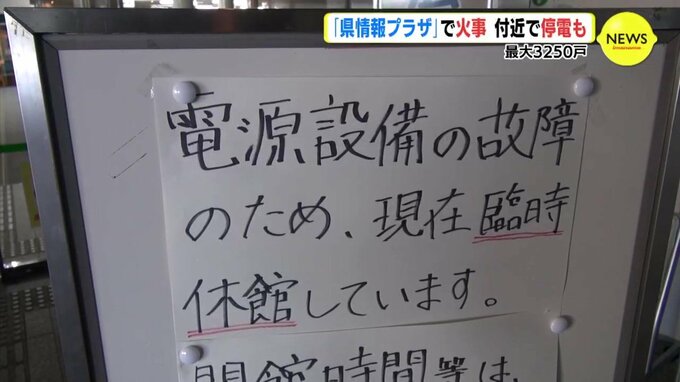 「県情報プラザ」で火事 付近で停電も
最大3250戸
NEWS
電源設備の故障
のため、現在臨時
休館しています。
開館時間等は、